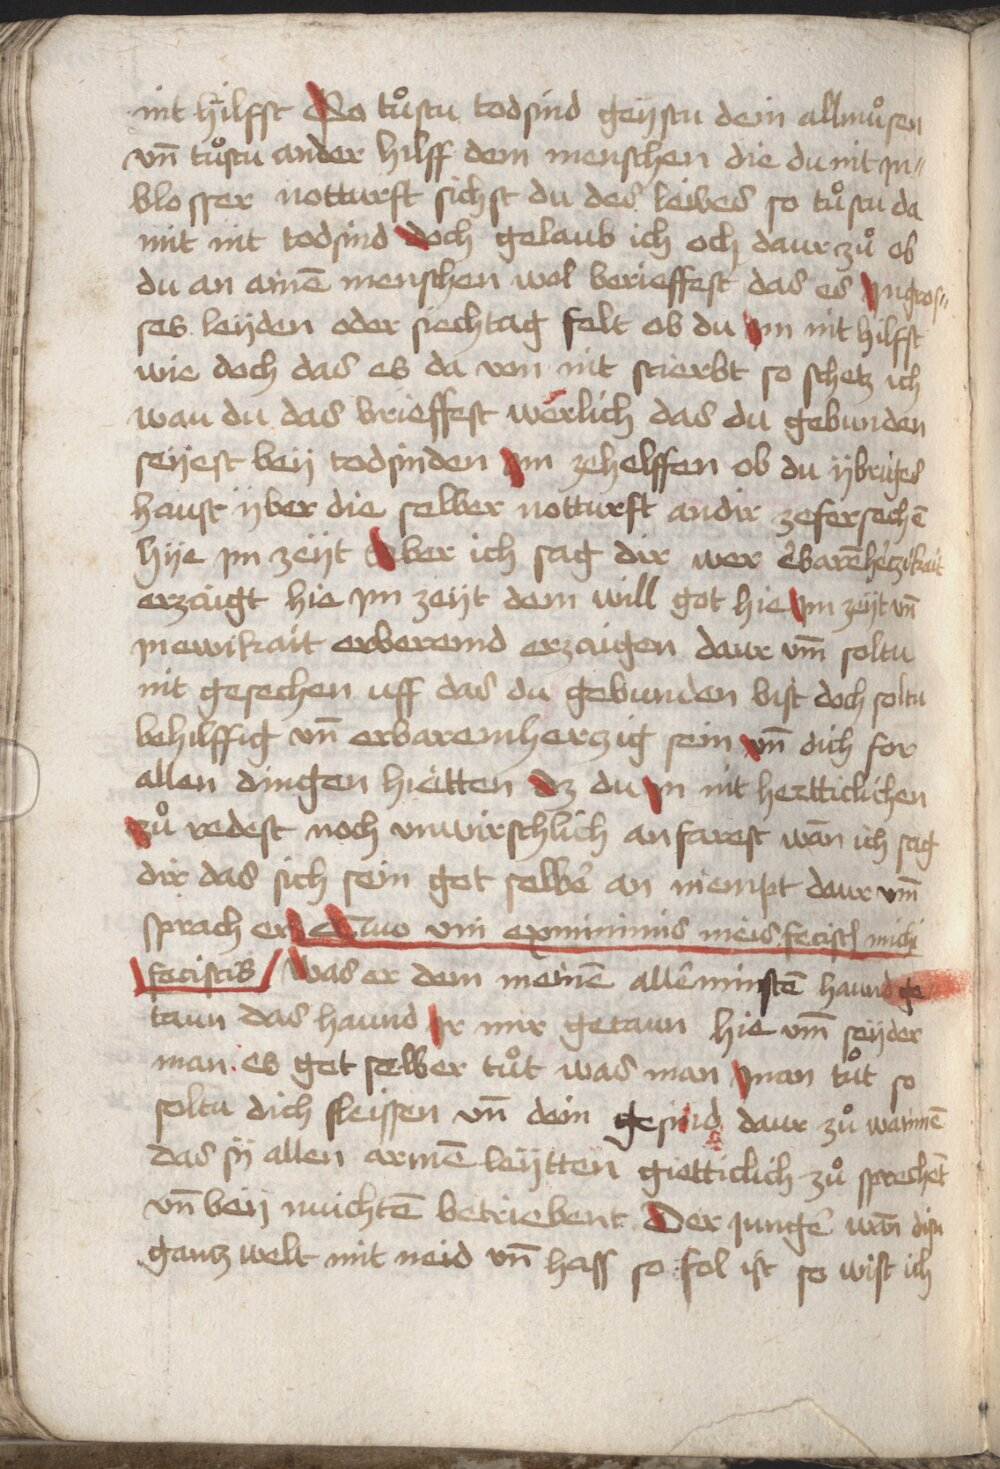 nit hilfst So tůstu todsind geystu dein allmůsen
vn̄ tůstu ander hilff dem menschen die du nit in„
blosser notturft sichst du des leibes so tůstu da
mit nit todsind doch gelaub ich och daur zů ob
du an ainē menschen wol berieffest das es jn gros„
ses leyden oder siechtag felt ob du im nit hilfst
wie doch das es da von nit stierbt so schetz ich
wau du das brieffest werlich das du gebunden
seyest bey todsinden im zehelffen ob du ybriges
haust yber die selber notturft an dir zefersechē
hye jm zeyt Aber ich sag dir wer ebarēhe͛tzikait
erzaigt hie jm zeyt dem will got hie jm zeyt vn̄
jn ewikait erberemd erzaigen daur vm̄ soltu
nit gesechen uff das du gebunden bist doch soltu
behilffig vn̄ erbaremherzig sein vn̄ dich for
allen dingen hietten dz du in nit hertticlichen
zů redest noch vnwirschlich an farest wān ich sag
dir das sich sein got selbe͛ an niempt daur vm̄
sprach er Quo vni ex minimis meis fecistis michi
fecistis Was er dem meinē alle͛minstē haund ge
taun das haund jr mir getaun hie vm̄ seyder
man es got selber tůt was man jman tůt so
soltu dich fleissen vn̄ dein gesind daur zů
das sy allen armē leytten gietticlich zů sprechēt
vn̄ bey nuichtē betriebent Der junge͛ wān disu
gantz welt mit neid vn̄ hass so fol ist so wist ich